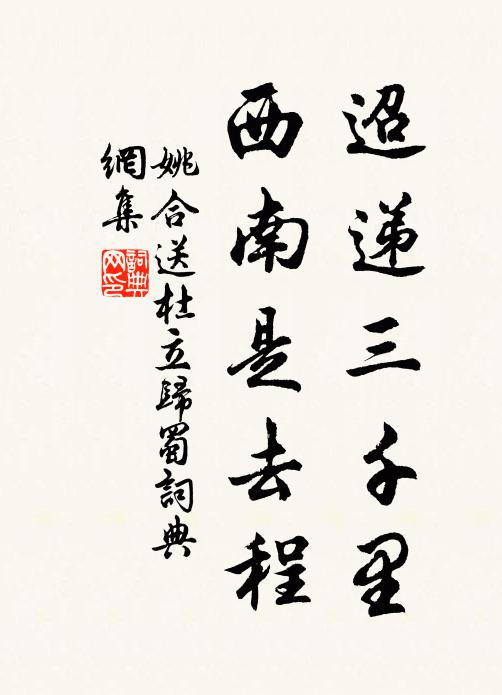 迢递三千里
西南是去程
姚合送杜立歸蜀詞典
網集
詞典
网印